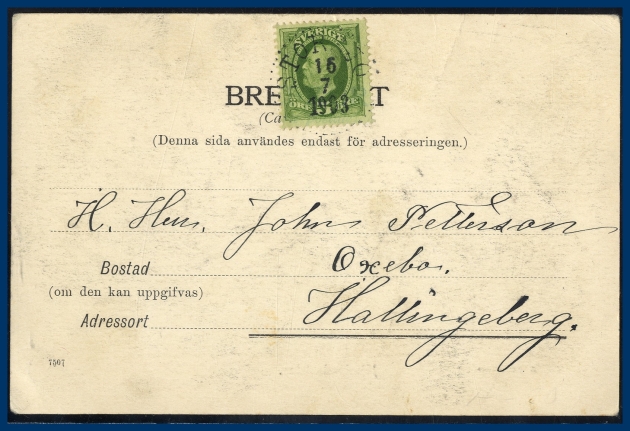 SVERIGE
15
7
1903
BRE T
(Ca
(Denna sida användes endast för adresseringen.)
H. Herr. John Petterson
Bostad Oxebo.
(om den kan uppgifvas)
Adressort Hallingeberg.
7507